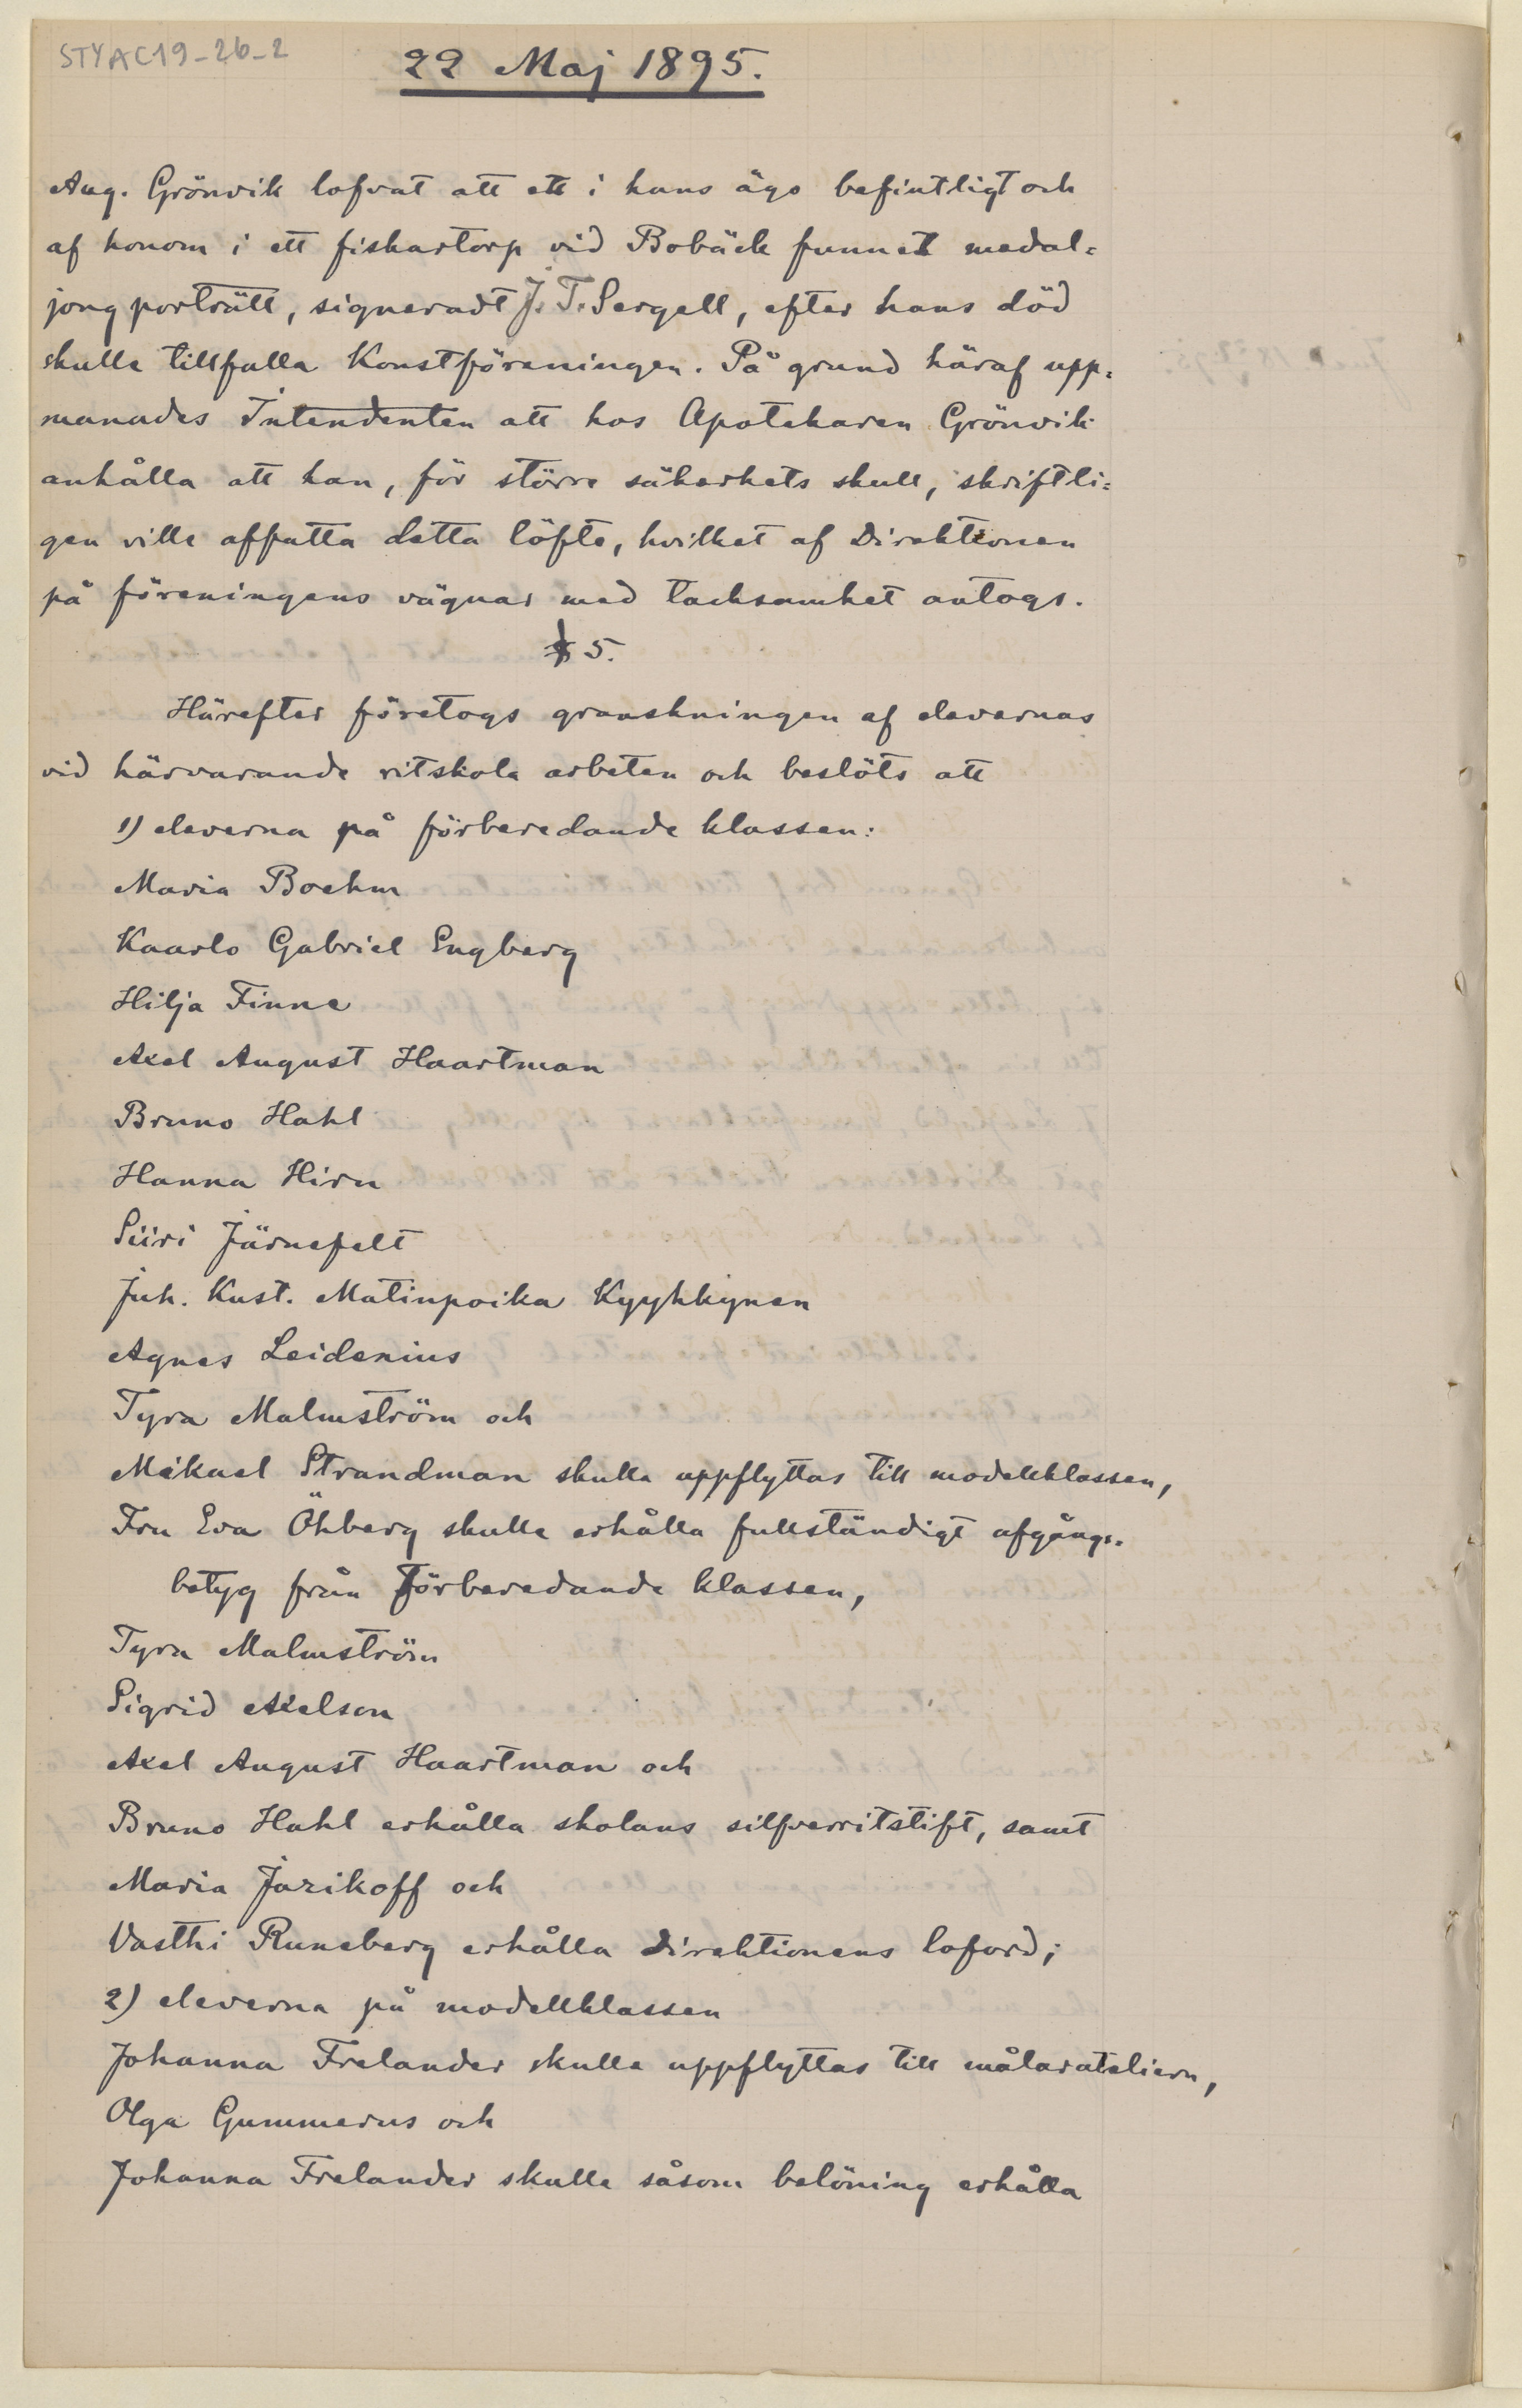 STYAC19-26-2
22 Maj 1895.
Aug. Grönvik lofvat att ett i hans ägo befintligt och
af honom i ett fiskartorp vid Bobäck funnet medal=
jongporträtt, signeradt J. T. Sergell, efter hans död
skulle tillfalla Konstföreningen. På grund häraf upp=
manades Intendenten att hos Apotekaren Grönvik
anhålla att han, för större säkerhets skull, skriftli=
gen ville affatta detta löfte, hvilket af Direktionen
på föreningens vägnar med tacksamhet antogs.
§ 5.
Härefter företogs granskningen af elevernas
vid härvarande ritskola arbeten och beslöts att
1) eleverna på förberedande klassen:
Maria Boehm
Kaarlo Gabriel Engberg
Hilja Finne
Axel August Haartman
Bruno Hahl
Hanna Hirn
Siiri Järnefelt
Juh. Kust. Matinpoika Kyyhkynen
Agnes Leidenius
Tyra Malmström och
Mikael Strandman skulle uppflyttas till modellklassen,
Fru Eva Öhberg skulle erhålla fullständigt afgångs-
betyg från förberedande klassen,
Tyra Malmström
Sigrid Axelson
Axel August Haartman och
Bruno Hahl erhålla skolans silfverritstift, samt
Maria Jarikoff och
Vasthi Runeberg erhålla Direktionens loford;
2) eleverna på modellklassen
Johanna Frelander skulle uppflyttas till målarateliern,
Olga Gummerus och
Johanna Frelander skulle såsom belöning erhålla